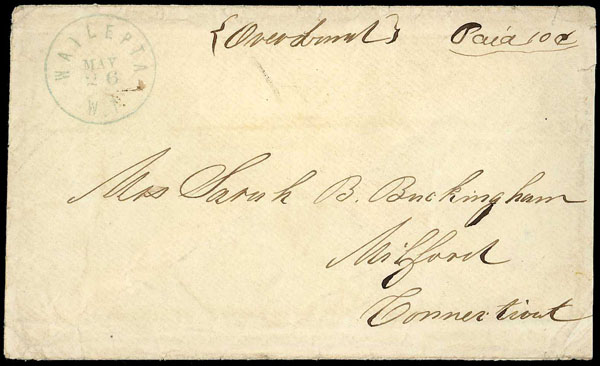 {Overland} Paid 10¢
WAIILEPTA
MAY
26
W.T.
Mrs Sarah B. Buckingham
Milford
Connecticut